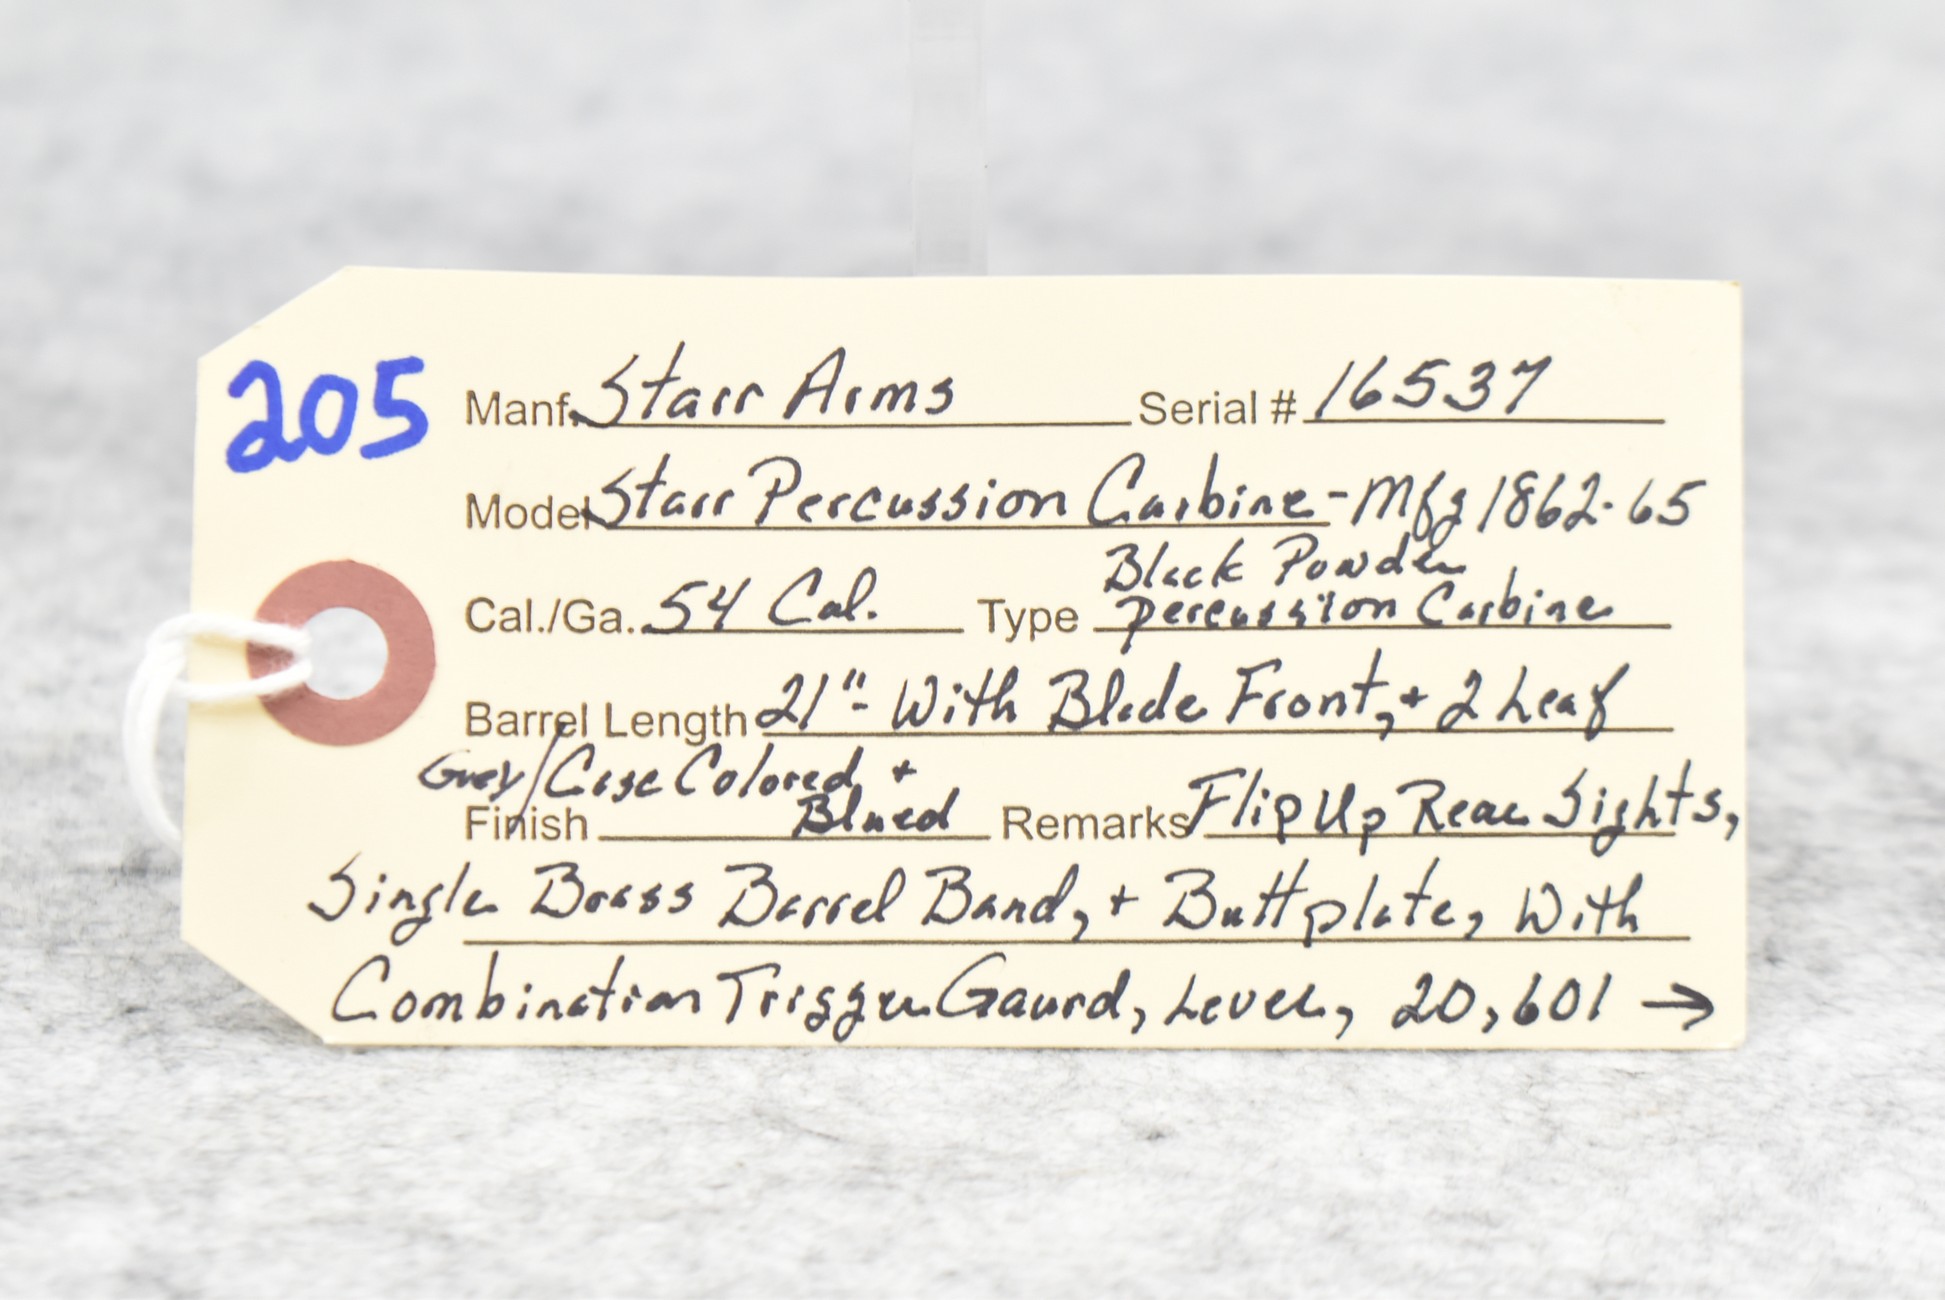 205
Manf. Starr Arms Serial # 16537
Model Starr Percussion Carbine - Mfg 1862-65
Black Powder
Cal./Ga. 54 Cal. Type percussion Carbine
Barrel Length 21"- With Blade Front, + 2 Leaf
Grey/Case Colored +
Finish Blued Remarks Flip Up Rear Sights,
Single Brass Barrel Band, + Buttplate, With
Combination Trigger Gaurd, Lever, 20,601 →